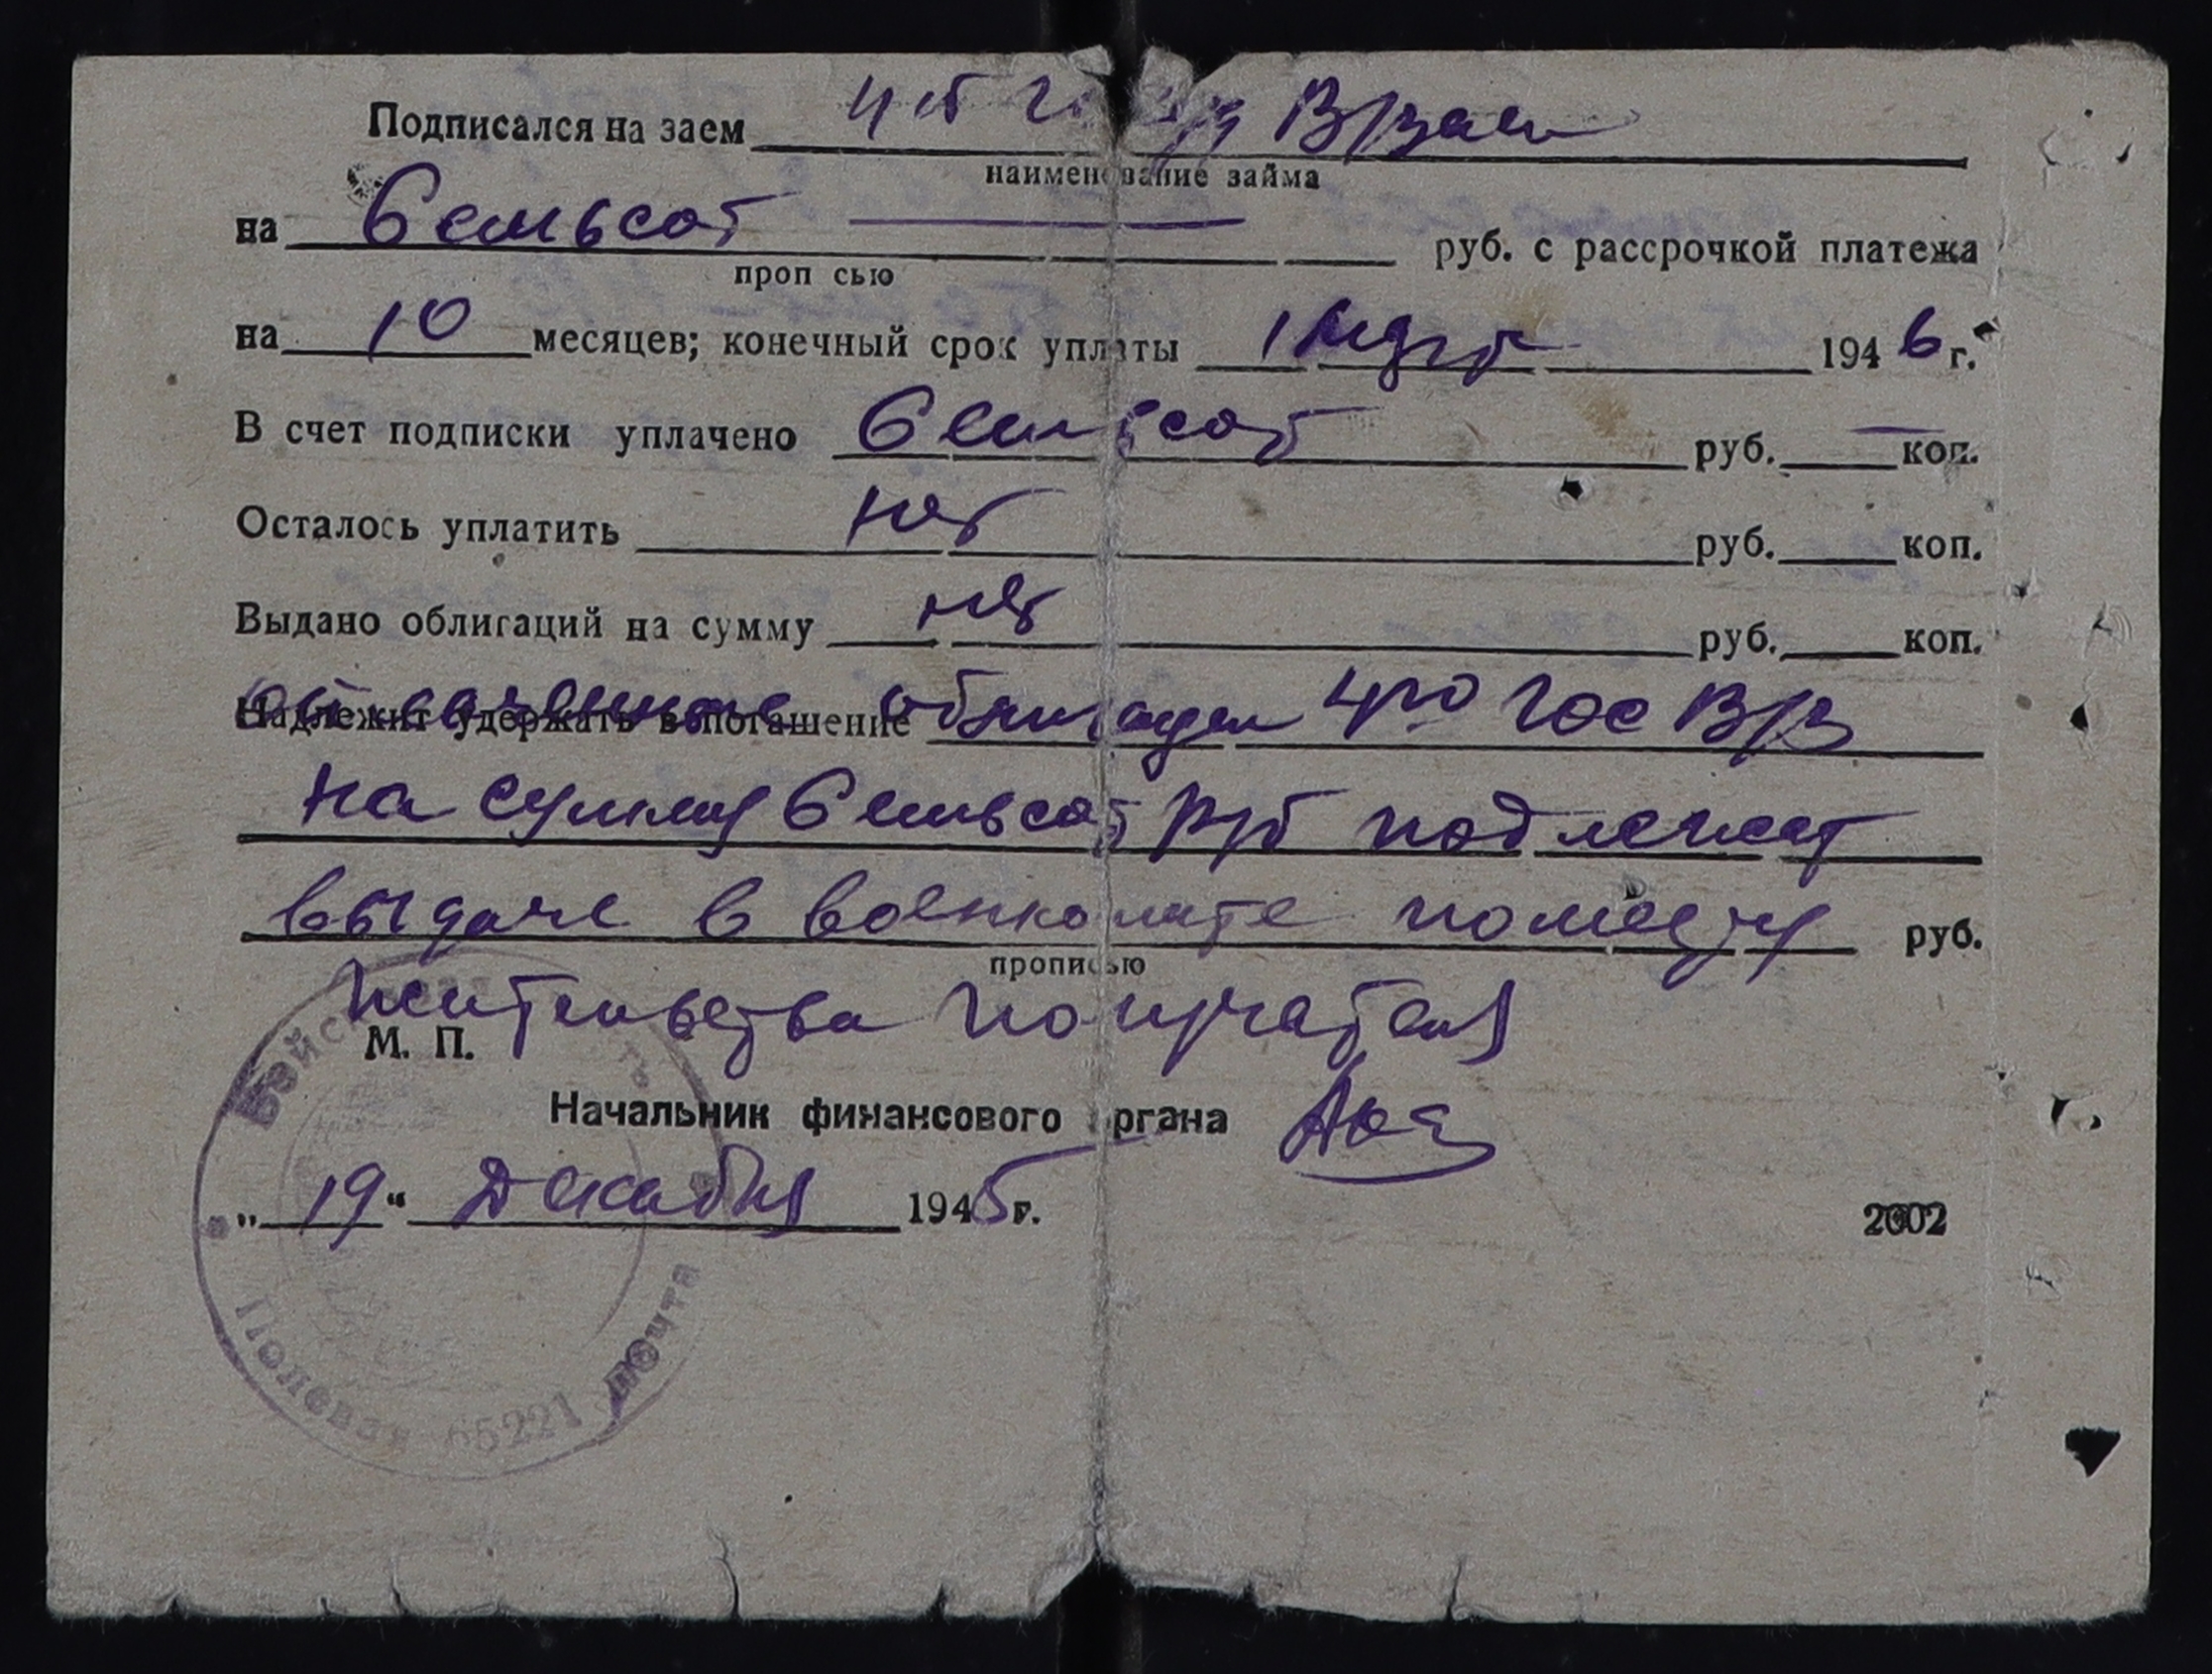 Подписался на заем 4й Гос В/заем
наименование займа
на Семьсот — руб. с рассрочкой платежа
проп сью
на 10 месяцев; конечный срок уплаты 1 марта 1946 г.
В счет подписки уплачено Семьсот руб. — коп.
Осталось уплатить нет руб. коп.
Выдано облигаций на сумму нет руб. коп.
Надлежит удержать в погашение
Оплаченные облигации 4го Гос В/З
на сумму Семьсот руб подлежат
выдаче в военкомате по месту руб.
прописью
жительства получателя
М. П.
Начальник финансового органа
„19“ Декабря 1945 г.
2002
Войсковая часть
Полевая почта 65221